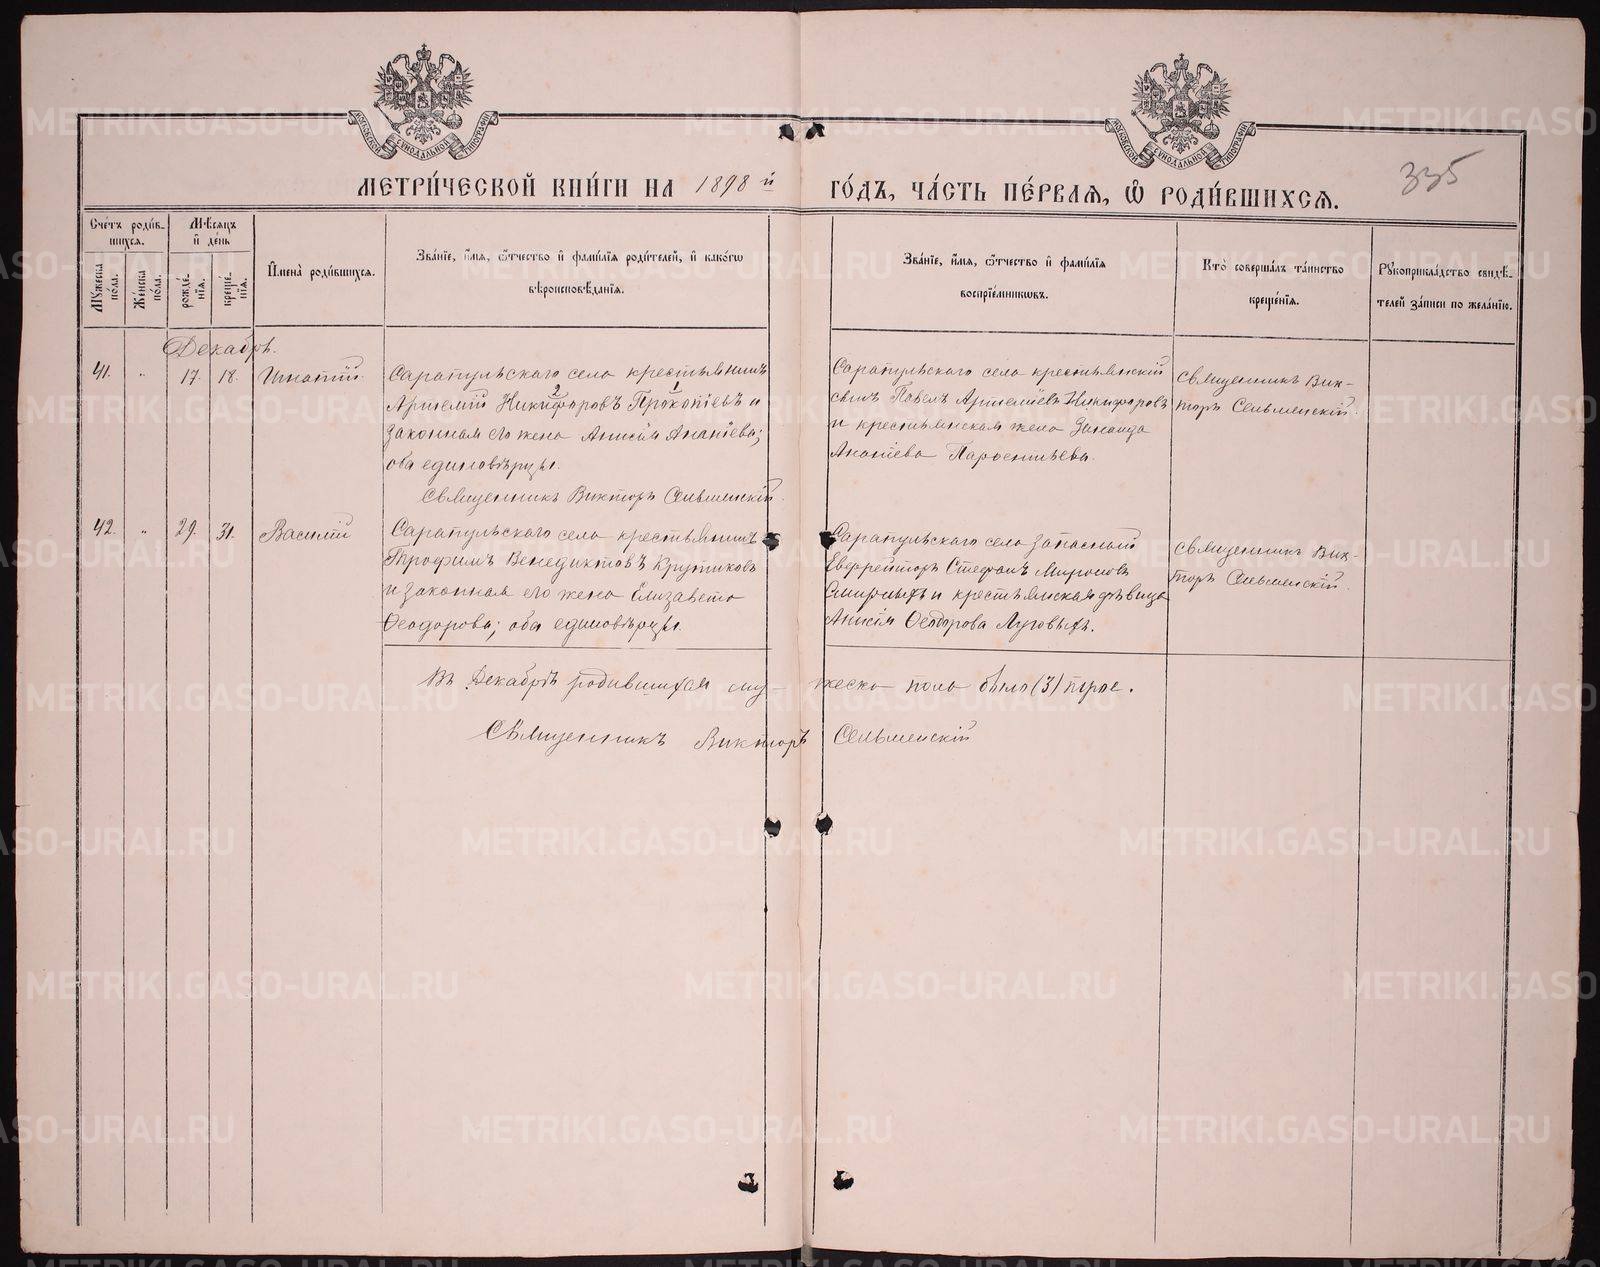 МОСКОВСКОЙ СѴНОДАЛЬНОЙ ТИПОГРАФІИ
МОСКОВСКОЙ СѴНОДАЛЬНОЙ ТИПОГРАФІИ
335
МЕТРИ́ЧЕСКОЙ КНИ́ГИ НА 1898 й ГО́ДЪ, ЧА́СТЬ ПЕ́РВАѦ, Ѡ҆ РОДИ́ВШИХСѦ.
Сче́тъ роди́в-
шихсѧ.
Мꙋ́жеска по́ла.
Же́нска по́ла.
Мѣ́сѧцъ
и҆ де́нь
рожде́-
нїѧ.
креще́-
нїѧ.
И҆мена̀ роди́вшихсѧ.
Зва́нїе, и҆́мѧ, ѻ҆́тчество и҆ фами́лїѧ роди́телей, и҆ како́гѡ
вѣроисповѣ́данїѧ.
Зва́нїе, и҆́мѧ, ѻ҆́тчество и҆ фами́лїѧ
воспрїе́мникѡвъ.
Кто̀ соверша́лъ та́инство
креще́нїѧ.
Рꙋкоприкла́дство свидѣ́-
телей за́писи по жела́нїю.
Декабрь.
41. " 17. 18. Игнатій
Сарапульскаго села крестьянинъ
Артемій Никифоровъ Прокопьевъ и
2 1
законная его жена Анисія Ананіева;
оба единовѣрцы.
Священникъ Викторъ Сельменскій
Сарапульскаго села крестьянскій
сынъ Павелъ Артеміевъ Никифоровъ
и крестьянская жена Зинаида
Ананіева
Священникъ Вик-
торъ Сельменскій.
42. " 29. 31. Василій
Сарапульскаго села крестьянинъ
Трофимъ Венедиктовъ Крутиковъ
и законная его жена Елизавета
Ѳеодорова; оба единовѣрцы.
Сарапульскаго села запасный
Ефрейторъ Стефанъ Мироновъ
Смирныхъ и крестьянская дѣвица
Анисія Ѳеодорова Луговыхъ.
Священникъ Вик-
торъ Сельменскій.
Въ Декабрѣ родившихся му- жеска пола было (3) трое.
Священникъ Викторъ Сельменскій
METRIKI.GASO-URAL.RU